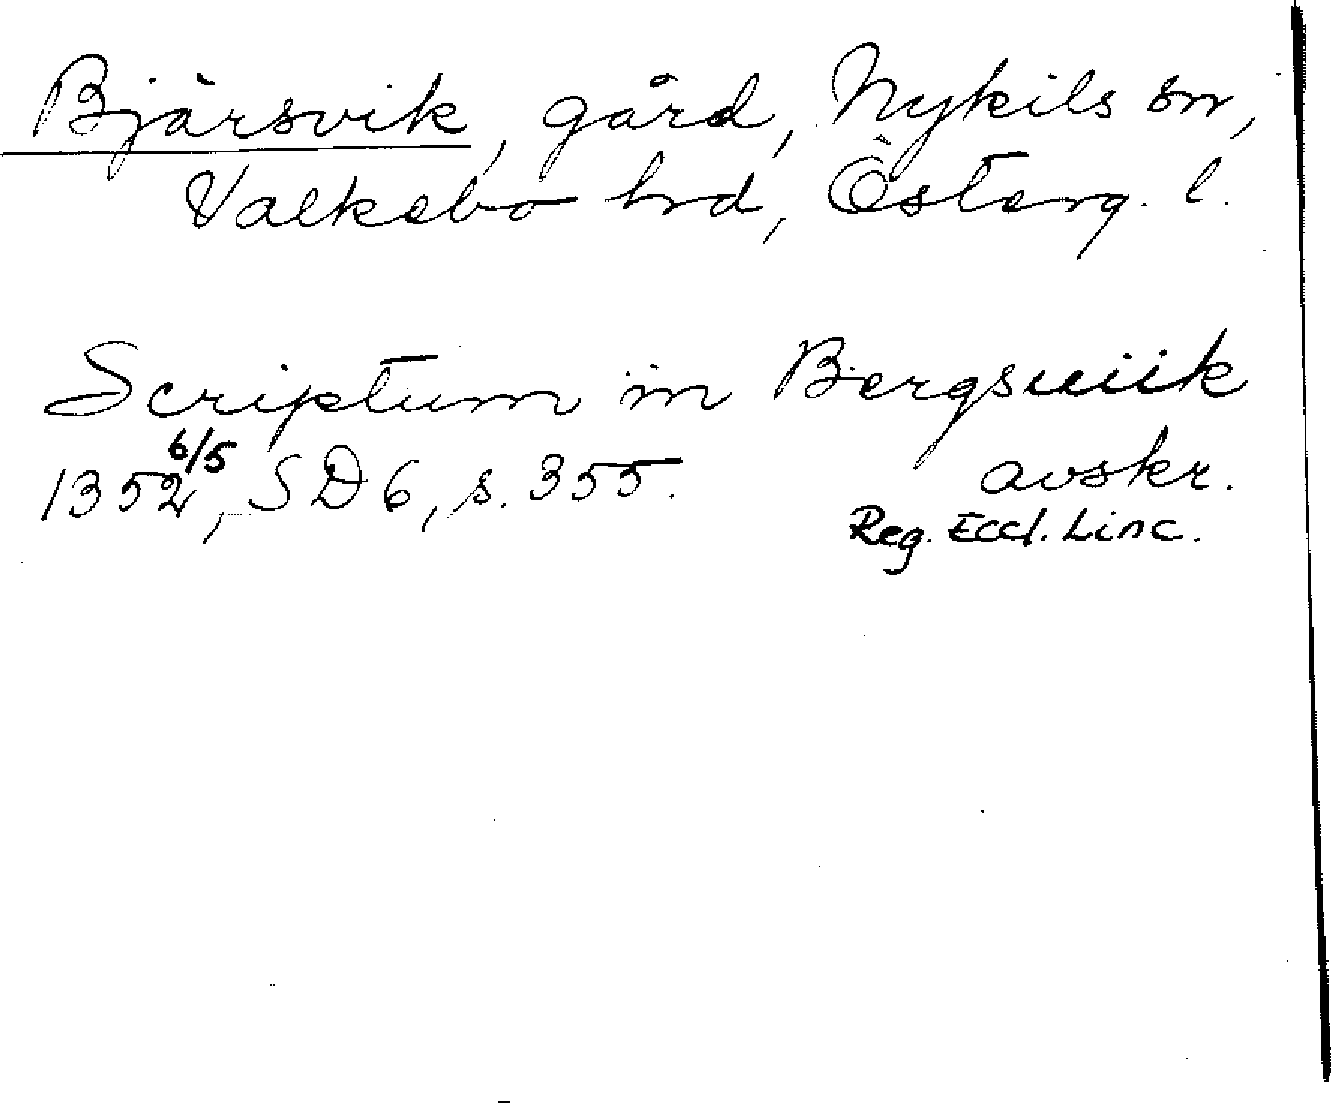 Bjärsvik, gård, Nykils sn,
Valkebo hd, Österg. l.
Scriptum in Bergswiik
1352 6/5, SD 6, s. 355. avskr.
Reg. Eccl. Linc.